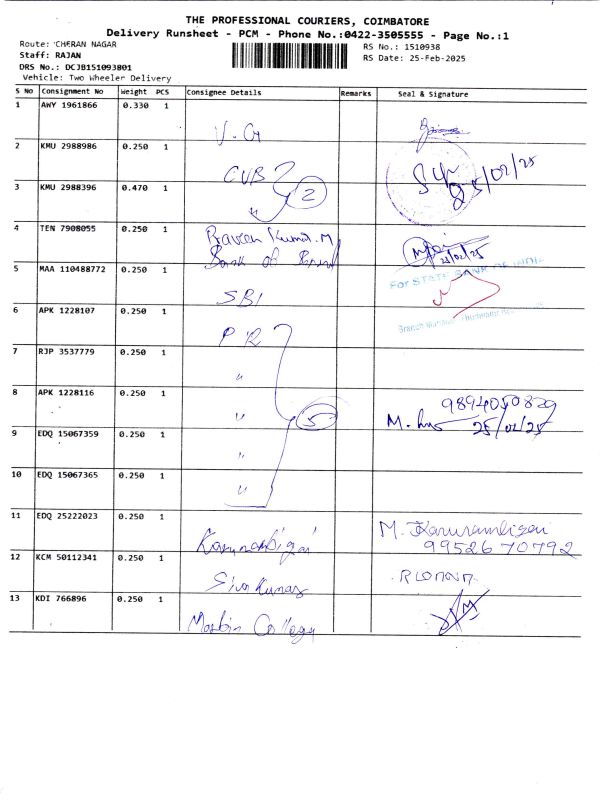 THE PROFESSIONAL COURIERS, COIMBATORE
Delivery Runsheet - PCM - Phone No.:0422-3505555 - Page No.:1
Route: CHERAN NAGAR
Staff: RAJAN
DRS No.: DCJB151093801
Vehicle: Two Wheeler Delivery
RS No.: 1510938
RS Date: 25-Feb-2025
S No Consignment No Weight PCS Consignee Details Remarks Seal & Signature
1 AWY 1961866 0.330 1
V-G
2 KMU 2988986 0.250 1
CUB
25/02/25
3 KMU 2988396 0.470 1
" 2
4 TEN 7908055 0.250 1
Praveen Kumar.M
Bank of
25/02/25
5 MAA 110488772 0.250 1
For STATE BANK OF INDIA
SBI
Branch
6 APK 1228107 0.250 1
P R
7 RJP 3537779 0.250 1
"
8 APK 1228116 0.250 1
" 5
9894050829
M.
25/02/25
9 EDQ 15067359 0.250 1
"
10 EDQ 15067365 0.250 1
"
11 EDQ 25222023 0.250 1
Karunambigai
M. Karunambigai
9952670792
12 KCM 50112341 0.250 1
Sivakumar
13 KDI 766896 0.250 1
Martin College